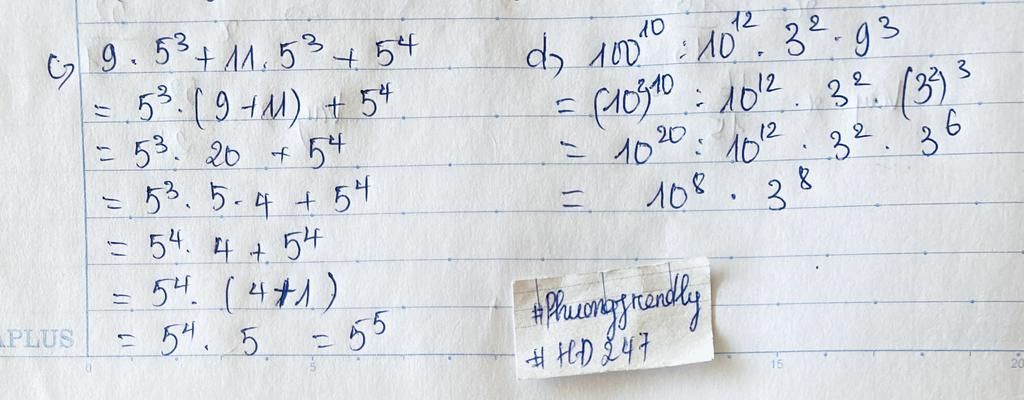 c, 9 . 5³ + 11 . 5³ + 5⁴
= 5³ . (9 + 11) + 5⁴
= 5³ . 20 + 5⁴
= 5³ . 5 . 4 + 5⁴
= 5⁴ . 4 + 5⁴
= 5⁴ . (4 + 1)
= 5⁴ . 5 = 5⁵
d, 100¹⁰ : 10¹² . 3² . 9³
= (10²)¹⁰ : 10¹² . 3² . (3²)³
= 10²⁰ : 10¹² . 3² . 3⁶
= 10⁸ . 3⁸
#Phuongfriendly
# HD 247
APLUS
0 5 15 20